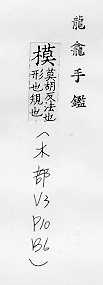 龍龕手鑑
模莫胡反法也
形也規也
(木部V3
P10
B6)